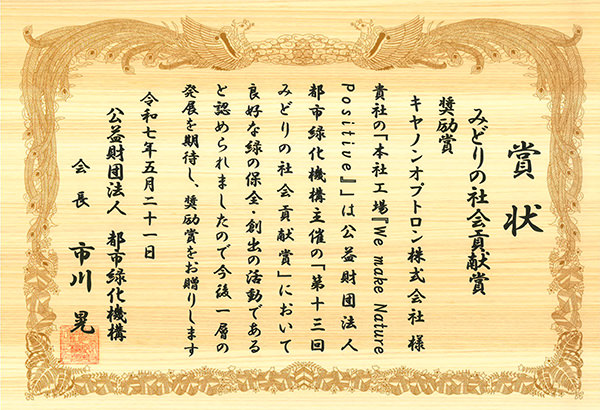 賞状
みどりの社会貢献賞
奨励賞
キヤノンオプトロン株式会社 様
貴社の「本社工場『We make Nature
Positive』」は公益財団法人
都市緑化機構主催の「第十三回
みどりの社会貢献賞」において
良好な緑の保全・創出の活動である
と認められましたので今後一層の
発展を期待し、奨励賞をお贈りします
令和七年五月二十一日
公益財団法人 都市緑化機構
会長 市川 晃